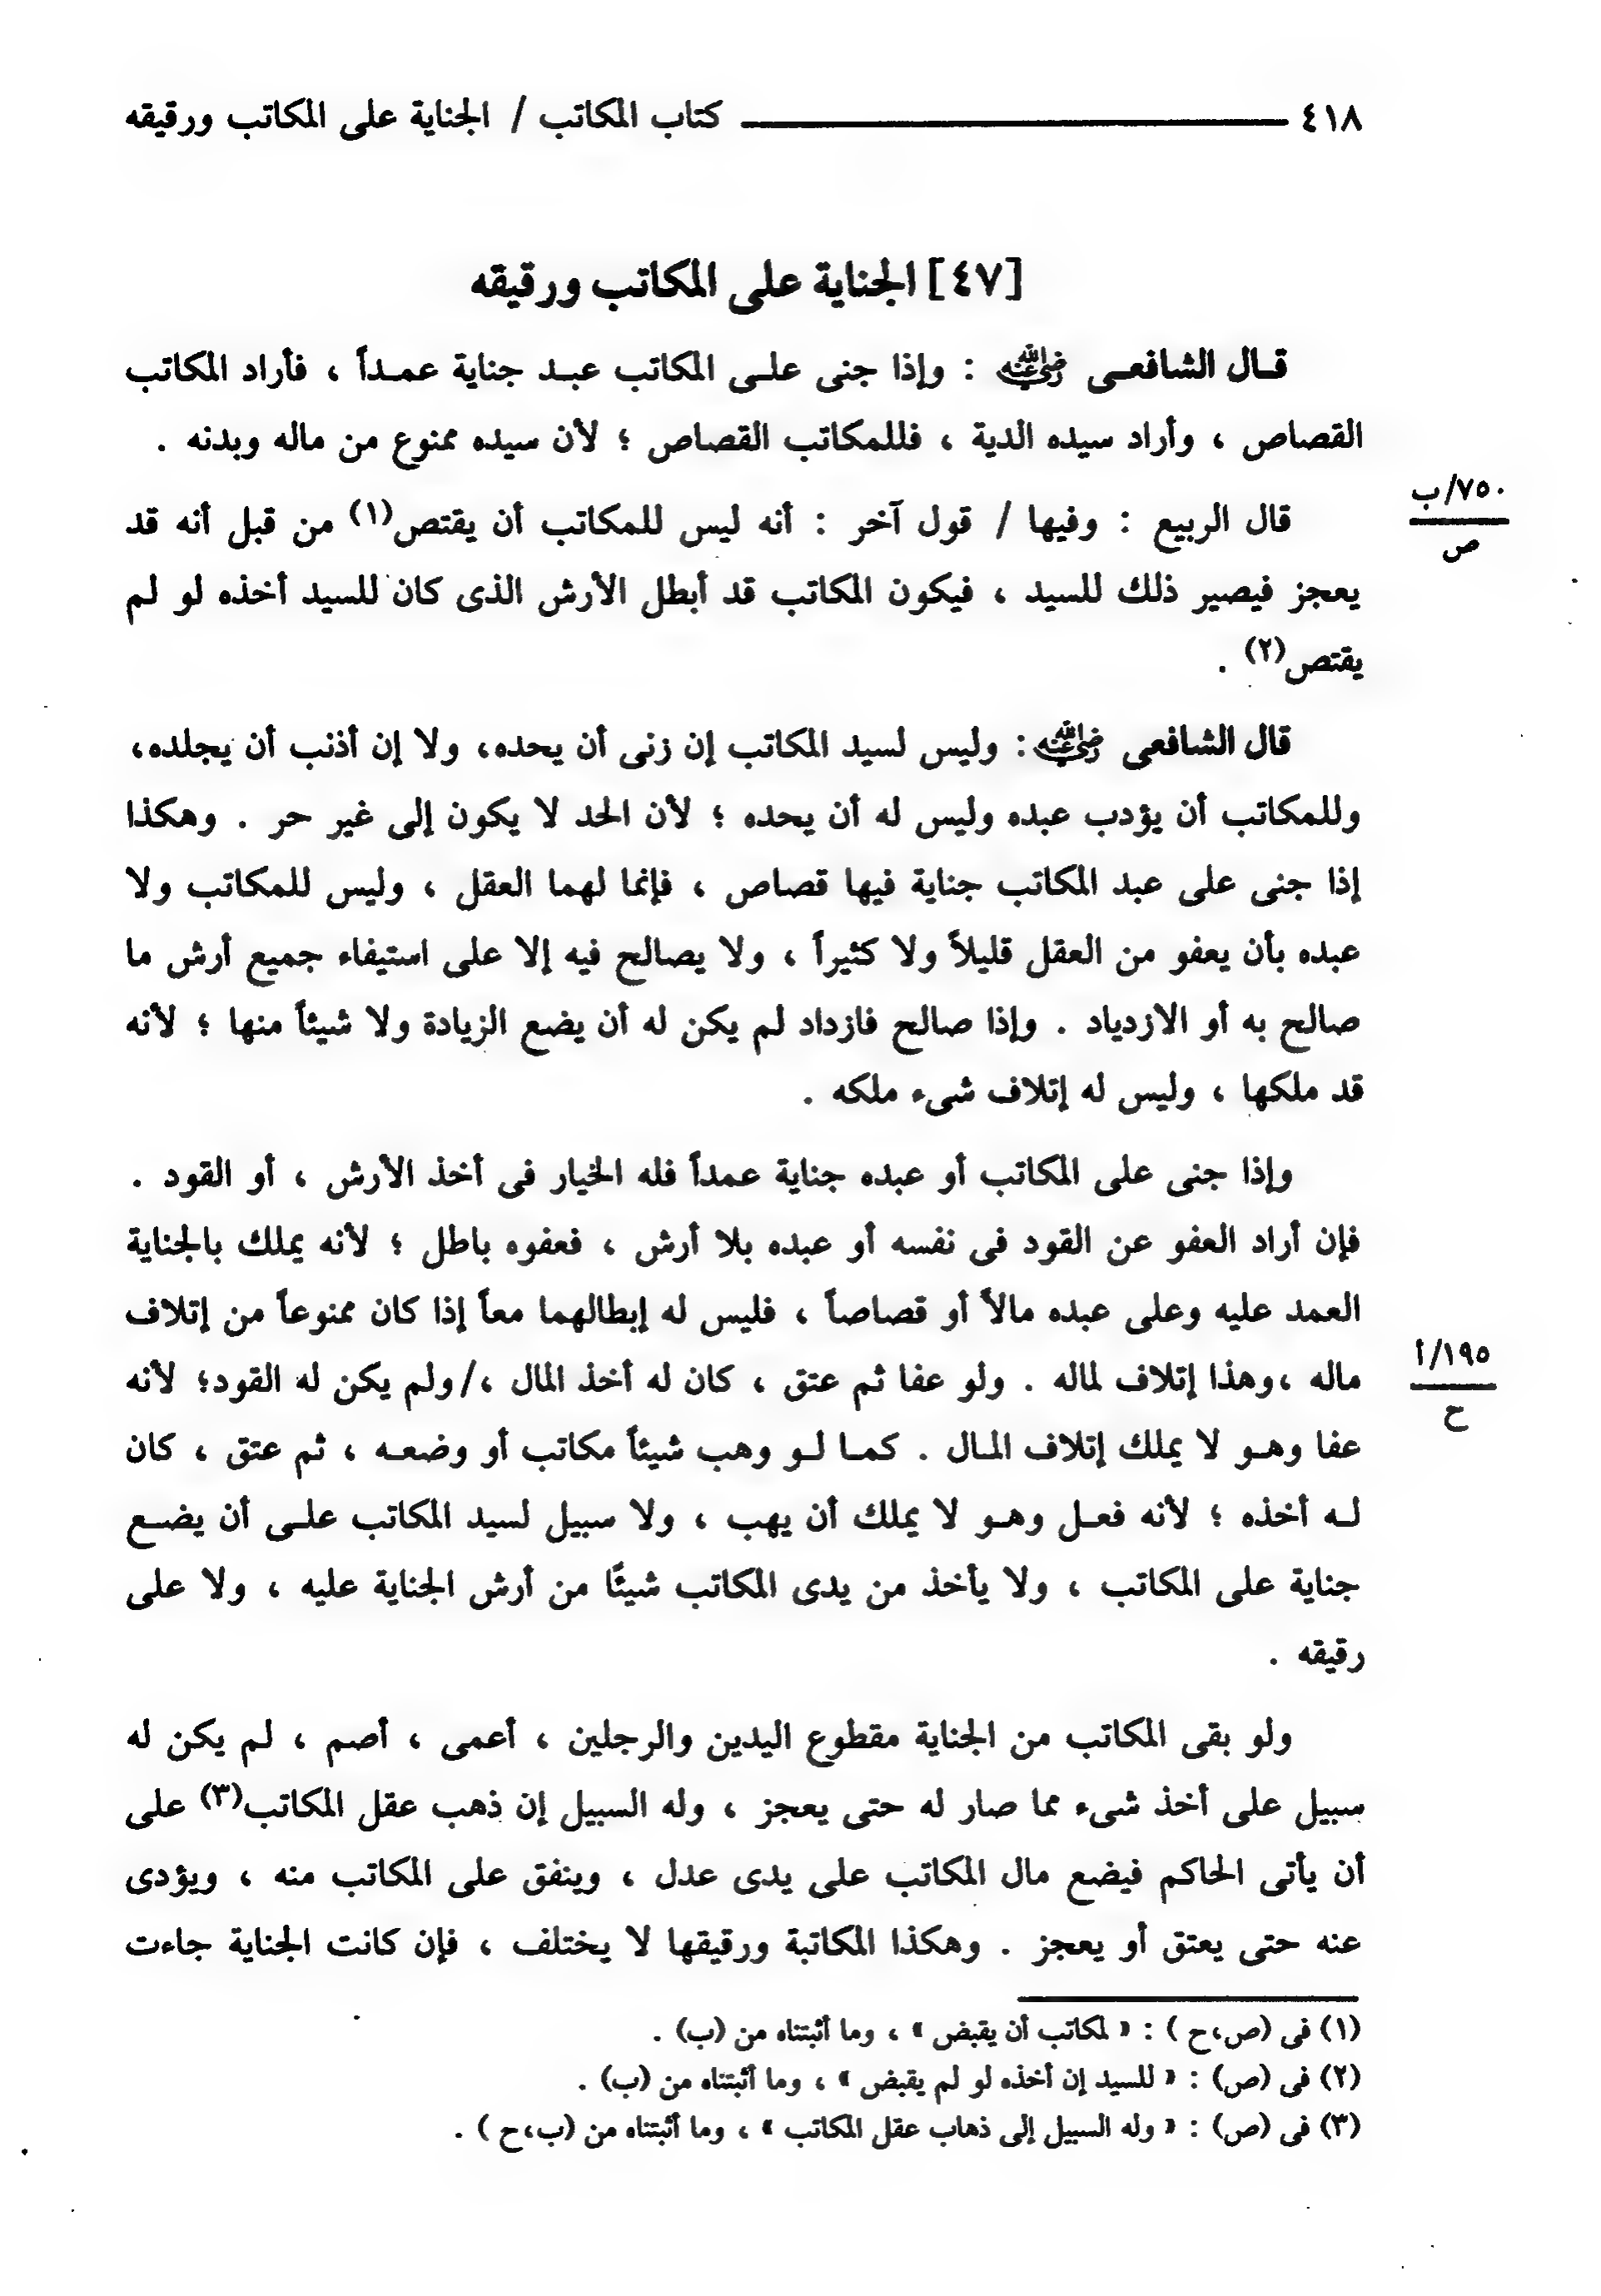 ٤١٨ ــــــــــ كتاب المكاتب / الجناية على المكاتب ورقيقه
[٤٧] الجناية على المكاتب ورقيقه
قـال الشافعـى رضي الله عنه : وإذا جنى علـى المكاتب عبـد جناية عمـداً ، فأراد المكاتب
القصاص ، وأراد سيده الدية ، فللمكاتب القصاص ؛ لأن سيده ممنوع من ماله وبدنه .
٧٥٠/ب
ص
قال الربيع : وفيها / قول آخر : أنه ليس للمكاتب أن يقتص(١) من قبل أنه قد
يعجز فيصير ذلك للسيد ، فيكون المكاتب قد أبطل الأرش الذى كان للسيد أخذه لو لم
يقتص(٢) .
قال الشافعى رضي الله عنه : وليس لسيد المكاتب إن زنى أن يحده، ولا إن أذنب أن يجلده،
وللمكاتب أن يؤدب عبده وليس له أن يحده ؛ لأن الحد لا يكون إلى غير حر . وهكذا
إذا جنى على عبد المكاتب جناية فيها قصاص ، فإنما لهما العقل ، وليس للمكاتب ولا
عبده بأن يعفو من العقل قليلاً ولا كثيراً ، ولا يصالح فيه إلا على استيفاء جميع أرش ما
صالح به أو الازدياد . وإذا صالح فازداد لم يكن له أن يضع الزيادة ولا شيئاً منها ؛ لأنه
قد ملكها ، وليس له إتلاف شىء ملكه .
وإذا جنى على المكاتب أو عبده جناية عمداً فله الخيار فى أخذ الأرش ، أو القود .
فإن أراد العفو عن القود فى نفسه أو عبده بلا أرش ، فعفوه باطل ؛ لأنه يملك بالجناية
العمد عليه وعلى عبده مالاً أو قصاصاً ، فليس له إبطالهما معاً إذا كان ممنوعاً من إتلاف
١٩٥/أ
ح
ماله ،وهذا إتلاف لماله . ولو عفا ثم عتق ، كان له أخذ المال ،/ولم يكن له القود؛ لأنه
عفا وهـو لا يملك إتلاف المـال . كمـا لـو وهب شيئاً مكاتب أو وضعـه ، ثم عتق ، كان
لـه أخذه ؛ لأنه فعـل وهـو لا يملك أن يهب ، ولا سبيل لسيد المكاتب علـى أن يضـع
جناية على المكاتب ، ولا يأخذ من يدى المكاتب شيئًا من أرش الجناية عليه ، ولا على
رقيقه .
ولو بقى المكاتب من الجناية مقطوع اليدين والرجلين ، أعمى ، أصم ، لم يكن له
سبيل على أخذ شىء مما صار له حتى يعجز ، وله السبيل إن ذهب عقل المكاتب(٣) على
أن يأتى الحاكم فيضع مال المكاتب على يدى عدل ، وينفق على المكاتب منه ، ويؤدى
عنه حتى يعتق أو يعجز . وهكذا المكاتبة ورقيقها لا يختلف ، فإن كانت الجناية جاءت
(١) فى (ص،ح ) : « لمكاتب أن يقبض » ، وما أثبتناه من (ب) .
(٢) فى (ص) : « للسيد إن أخذه لو لم يقبض » ، وما أثبتناه من (ب) .
(٣) فى (ص) : « وله السبيل إلى ذهاب عقل المكاتب » ، وما أثبتناه من (ب،ح ) .